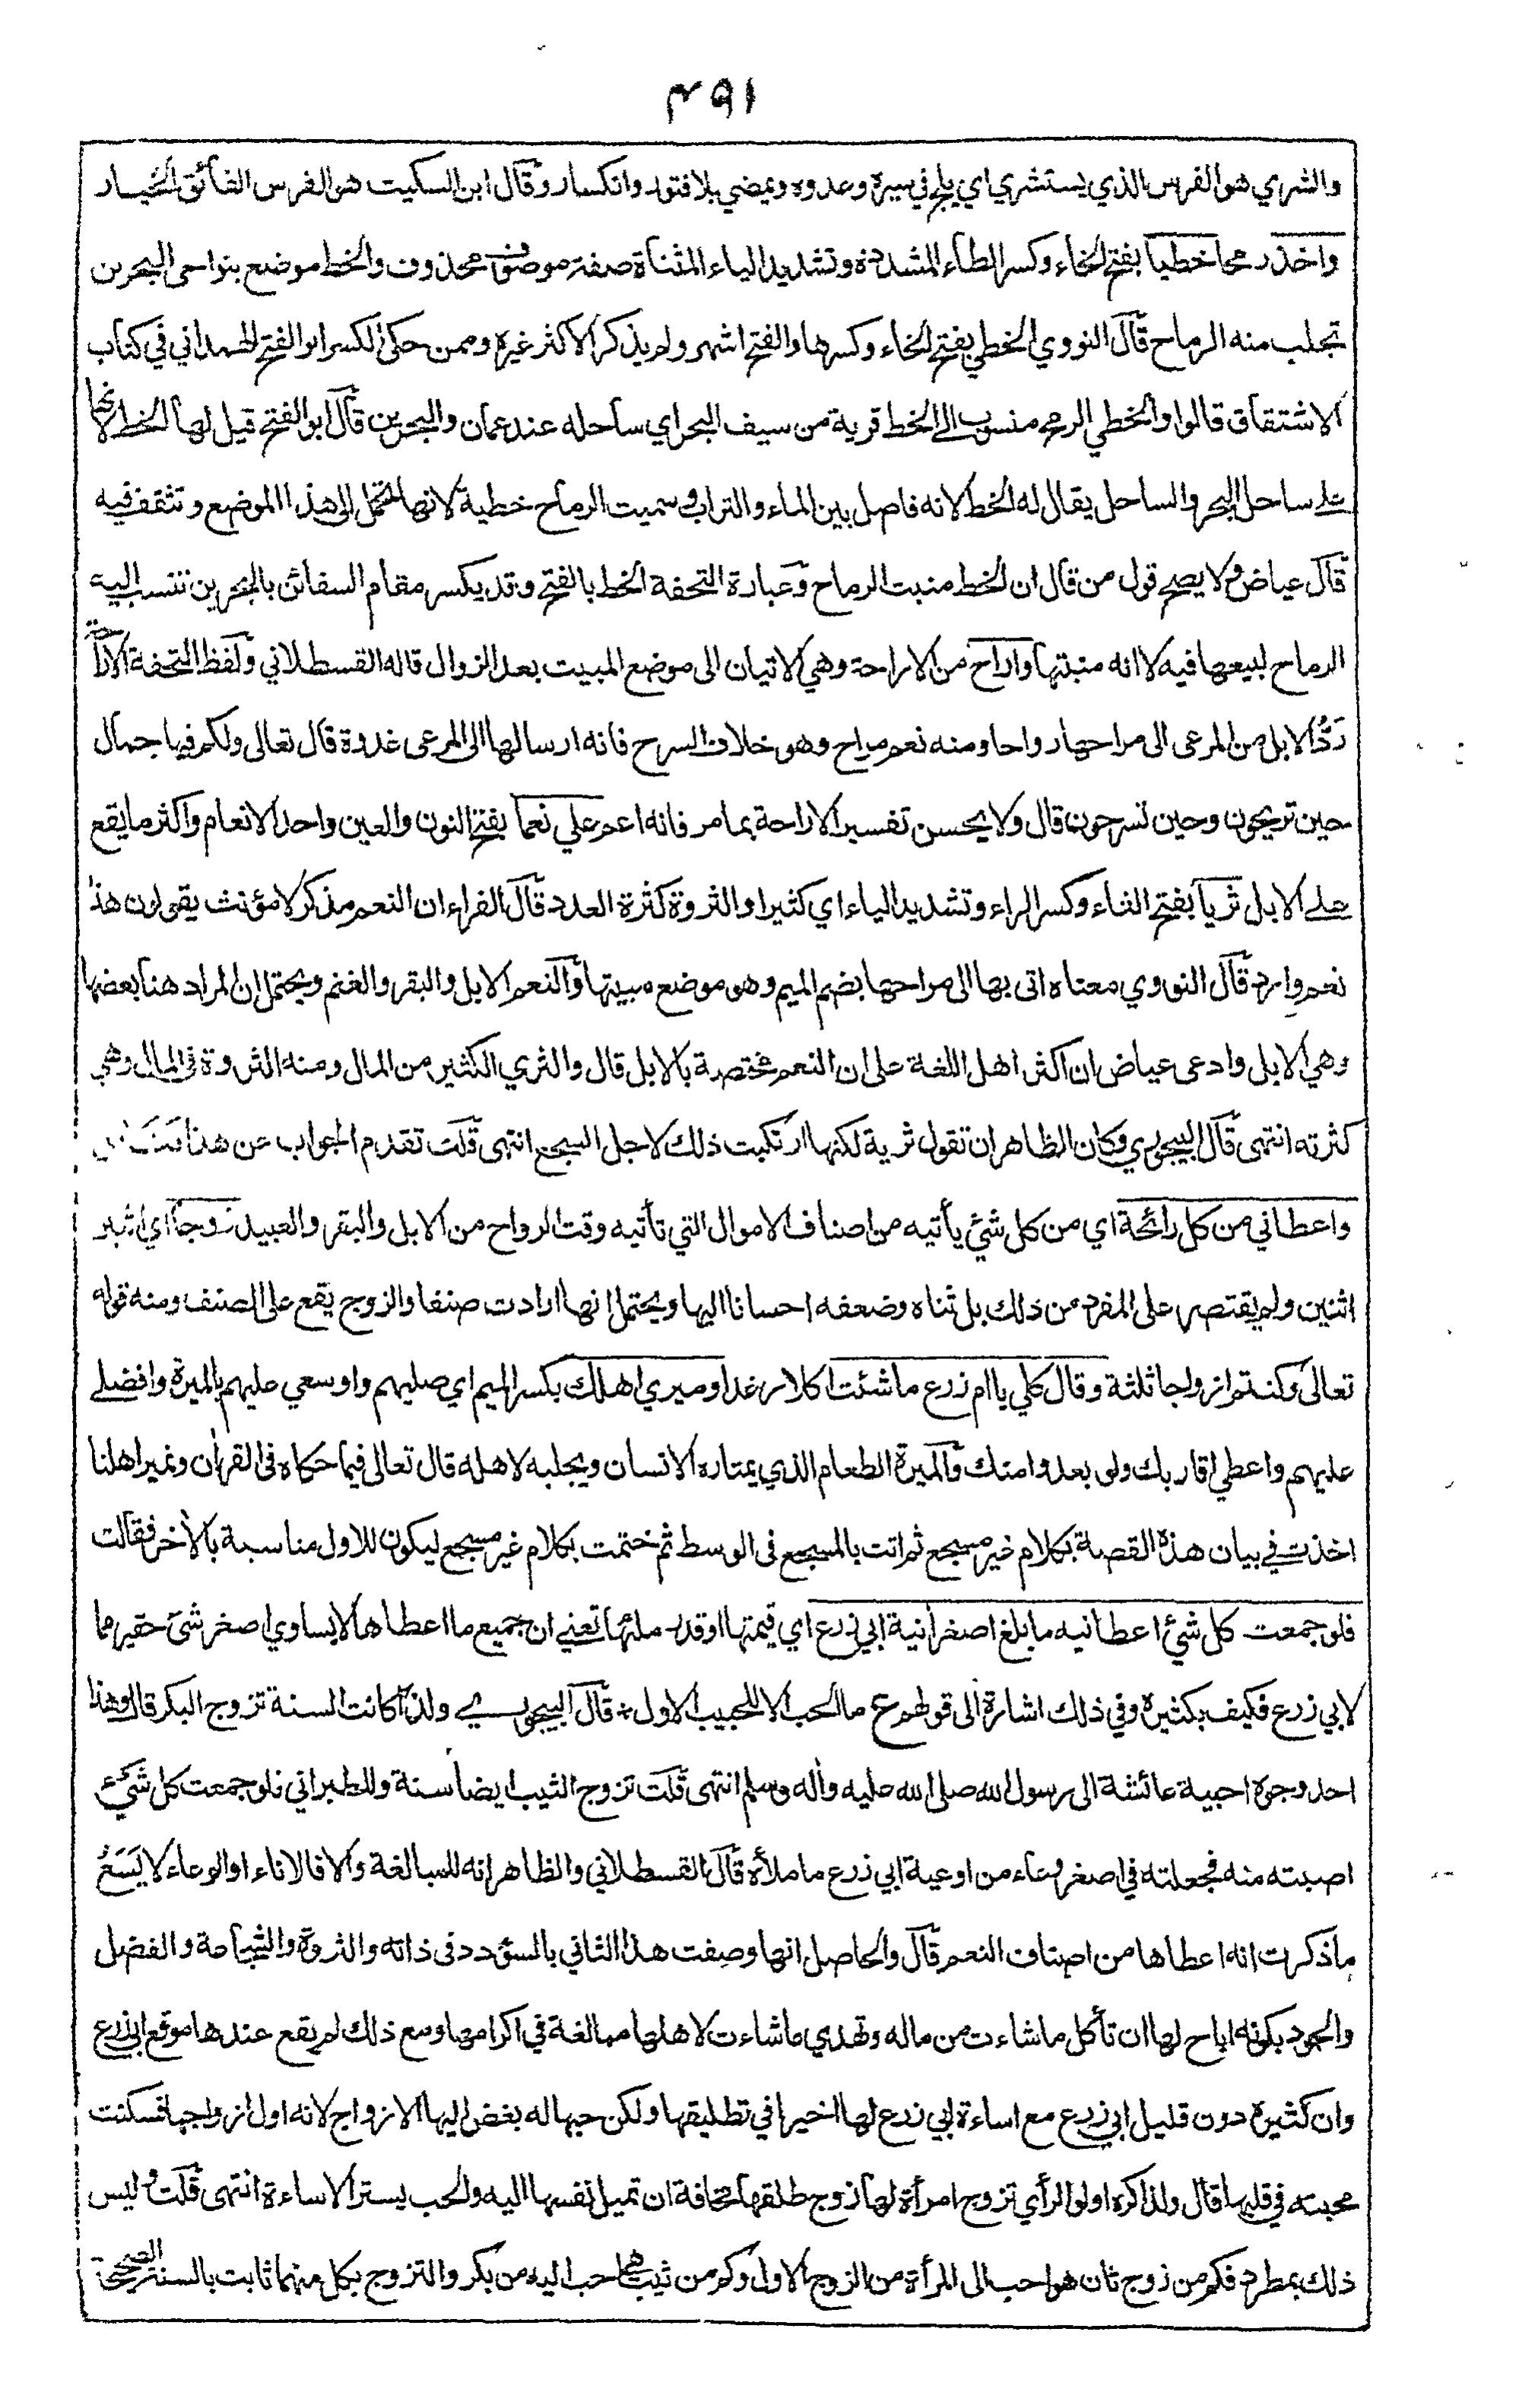 ٤٩١
والشري هو الفرس الذي يستشري اي يلج في سيره وعدوه ويمضي بلا فتور وانكسار وقال ابن السكيت هو الفرس الفائق الخيار
واخذ رمحا خطيا بفتح الخاء وكسر الطاء المشددة وتشديد الياء المثناة صفة موصوف محذوف والخط موضع بنواحي البحرين
تجلب منه الرماح قال النووي الخطي بفتح الخاء وكسرها والفتح اشهر ولم يذكر الاكثر غيره وممن حكى الكسر ابو الفتح الهمداني في كتاب
الاشتقاق قالوا والخطي الرمح منسوب الى الخط قرية من سيف البحر اي ساحله عند عمان والبحرين قال ابو الفتح قيل لها الخط لانها
على ساحل البحر والساحل يقال له الخط لانه فاصل بين الماء والتراب وسميت الرماح خطية لانها تحمل الى هذا الموضع وتثقف فيه
قال عياض ولا يصح قول من قال ان الخط منبت الرماح وعبارة التحفة الخط بالفتح وقد يكسر مقام السفائن بالبحرين تنسب اليه
الرماح لبيعها فيه لا انه منبتها واراح من الاراحة وهي الاتيان الى موضع المبيت بعد الزوال قاله القسطلاني ولفظ التحفة الاراحة
رَدُّ الابل من المرعى الى مراحها رواحا ومنه نعم مراح وهو خلاف السرح فانه ارسالها الى المرعى غدوة قال تعالى ولكم فيها جمال
حين تريحون وحين تسرحون قال ولا يحسن تفسير الاراحة بما مر فانه اعم علي نعما بفتح النون والعين واحد الانعام واكثر ما يقع
على الابل ثريا بفتح الثاء وكسر الراء وتشديد الياء اي كثيرا والثروة كثرة العدد قال الفراء ان النعم مذكر لا مؤنث يقولون هذا
نعم وارد قال النووي معناه اتى بها الى مراحها بضم الميم وهو موضع مبيتها والنعم الابل والبقر والغنم ويحتمل ان المراد هنا بعضها
وهي الابل وادعى عياض ان اكثر اهل اللغة على ان النعم مختصة بالابل قال والثري الكثير من المال ومنه الثروة في المال وهي
كثرته انتهى قال البيجوري وكان الظاهر ان تقول ثرية لكنها ارتكبت ذلك لاجل السجع انتهى قلت تقدم الجواب عن هذا
واعطاني من كل رائحة اي من كل شئ يأتيه من اصناف الاموال التي تأتيه وقت الرواح من الابل والبقر والعبيد زوجا اي اثنين
اثنين ولم يقتصر على المفرد من ذلك بل ثناه وضعفه احسانا اليها ويحتمل انها ارادت صنفا والزوج يقع على الصنف ومنه قوله
تعالى وكنتم ازواجا ثلثة وقال كلي يا ام زرع ما شئت اكلا رغدا وميري اهلك بكسر الميم اي صليهم واوسعي عليهم بالميرة وافضلي
عليهم واعطي اقاربك ولو بعدوا منك والميرة الطعام الذي يمتاره الانسان ويجلبه لاهله قال تعالى فيما حكاه في القران ونمير اهلنا
اخذت في بيان هذه القصة بكلام غير مسجع ثم اتت بالمسجع في الوسط ثم ختمت بكلام غير مسجع ليكون للاول مناسبة بالأخر فقالت
فلو جمعت كل شئ اعطانيه ما بلغ اصغر أنية ابي زرع اي قيمتها او قدر ملئها تعني ان جميع ما اعطاها لا يساوي اصغر شئ حقير مما
لابي زرع فكيف بكثيره وفي ذلك اشارة الى قولهم ع ما الحب الا للحبيب الاول ÷ قال البيجوري ولذا كانت السنة تزوج البكر قال وهذا
احد وجوه احبية عائشة الى رسول الله صلى الله عليه وأله وسلم انتهى قلت تزوج الثيب ايضا سنة وللطبراني فلو جمعت كل شئ
اصبته منه فجعلته في اصغر وعاء من اوعية ابي زرع ما ملأه قال القسطلاني والظاهر انه للمبالغة والا فالاناء او الوعاء لا يَسَعُ
ما ذكرت انه اعطاها من اصناف النعم قال والحاصل انها وصفت هذا الثاني بالسؤدد في ذاته والثروة والشجاعة والفضل
والجود بكونه اباح لها ان تأكل ما شاءت من ماله وتهدي ما شاءت لاهلها مبالغة في اكرامها ومع ذلك لم يقع عندها موقع ابي زرع
وان كثيره دون قليل ابي زرع مع اساءة ابي زرع لها اخيرا في تطليقها ولكن حبها له بغض اليها الازواج لانه اول ازواجها فسكنت
محبته في قلبها قال ولذا كره اولو الرأي تزوج امرأة لها زوج طلقها مخافة ان تميل نفسها اليه والحب يستر الاساءة انتهى قلت وليس
ذلك بمطرد فكم من زوج ثان هو احب الى المرأة من الزوج الاول وكم من ثيب هي احب اليه من بكر والتزوج بكل منهما ثابت بالسنة الصحيحة